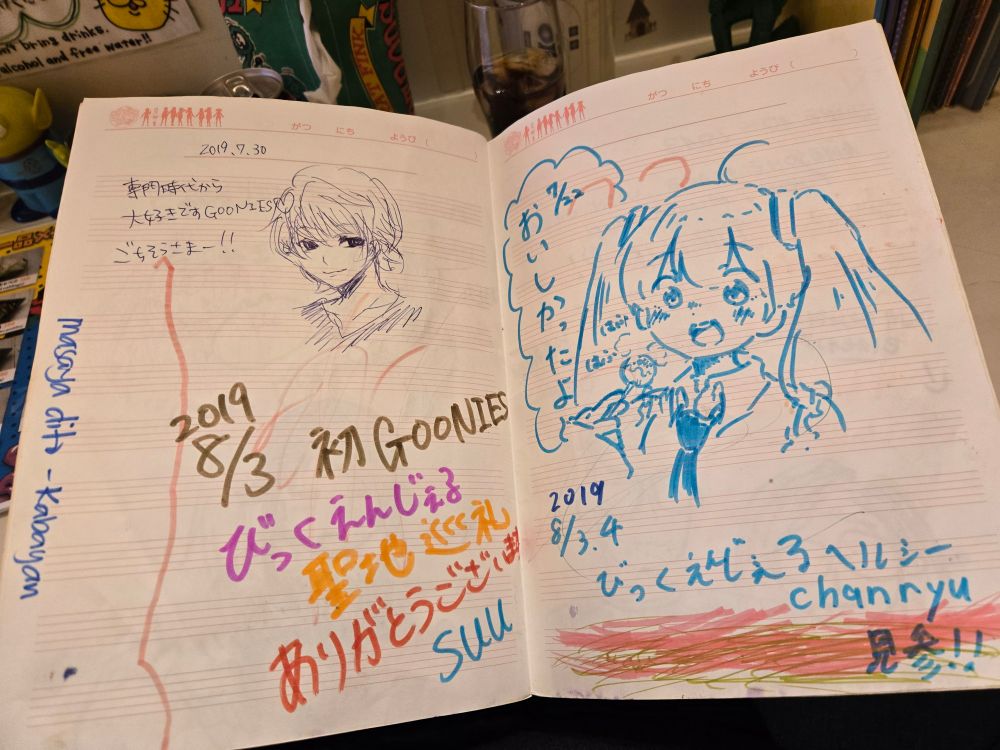 n't bring drinks,
alcohol and free water!!
がつ にち ようび (
2019.7.30
専門時代から
大好きですGOONIES♡
ごちそうさまー!!
masaya dito - Kabayan
2019
8/3 初GOONIES
びっくえんじぇる
聖地巡礼
ありがとうござい
suu
がつ にち ようび (
7/22
おいしかったよ
2019
8/3.4
びっくえんじぇる ヘルシー
chanryu
見参!!